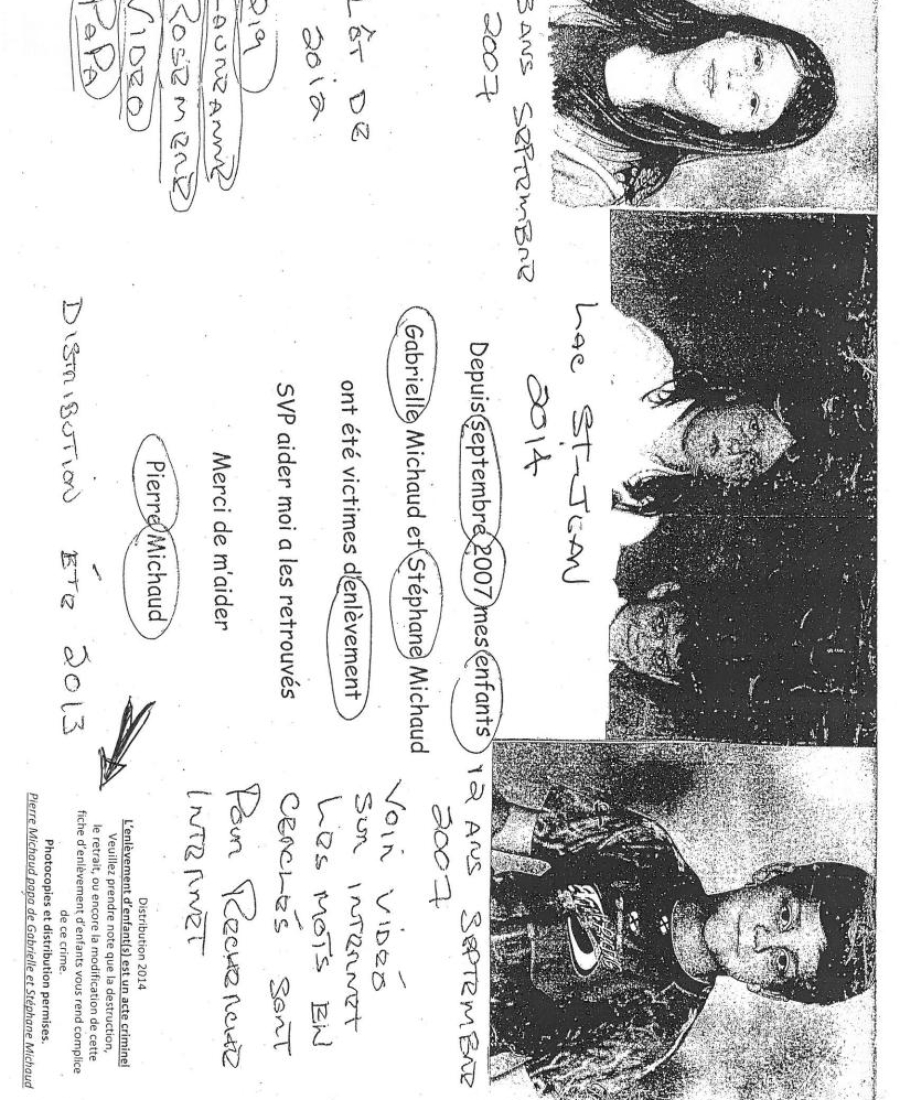 3 ANS SEPTEMBRE
2007
Lac ST-JEAN
2014
Depuis septembre 2007 mes enfants
Gabrielle Michaud et Stéphane Michaud
ont été victimes d'enlèvement
SVP aider moi a les retrouvés
Merci de m'aider
Pierre Michaud
DISTRIBUTION ÉTÉ 2013
12 ANS SEPTEMBRE
2007
VOIR VIDÉO
SUR INTERNET
LES MOTS EN
CERCLÉS SONT
POUR RECHERCHE
INTERNET
DE
2012
ROSEMERE
VIDEO
PAPA
Distribution 2014
L'enlèvement d'enfant(s) est un acte criminel
Veuillez prendre note que la destruction,
le retrait, ou encore la modification de cette
fiche d'enlèvement d'enfants vous rend complice
de ce crime.
Photocopies et distribution permises.
Pierre Michaud papa de Gabrielle et Stéphane Michaud